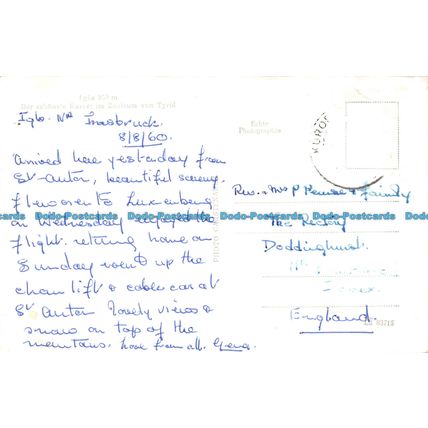 Igls 900 m
Der schönste Kurort im Zentrum von Tyrol
Igls. Nr Innsbruck.
8/8/60.
Arrived here yesterday from
St-Anton, beautiful scenery.
flew over to Luxembourg
on Wednesday enjoyed the
flight. returning home on
Sunday went up the
chair lift & cable car at
St Anton lovely views &
snow on top of the
mountains. love from all.
Echte
Photographie
Rev. & Mrs P & family
The Rectory
Doddinghurst.
Nr
Essex.
England.
Dodo-Postcards Dodo-Postcards Dodo-Postcards Dodo-Postcards